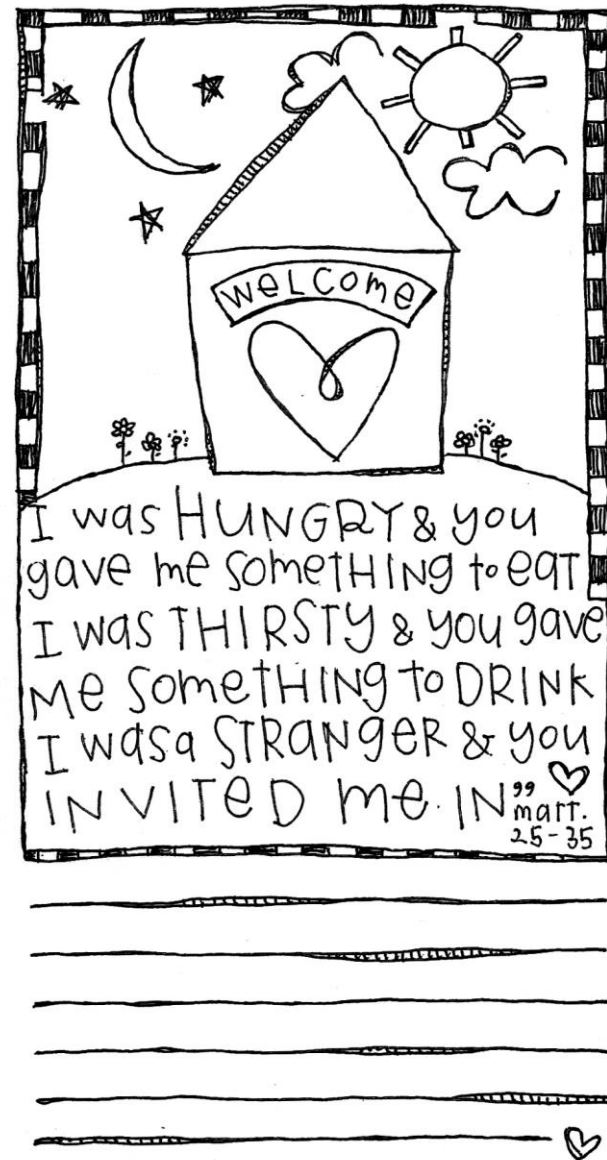 WELCOME
I was HUNGRY & you
gave me SometHING to eaT
I was THIRSTY & you gave
Me SometHING to DRINK
I was a STRaNgeR & you
INVITeD me. IN"
matt.
25-35